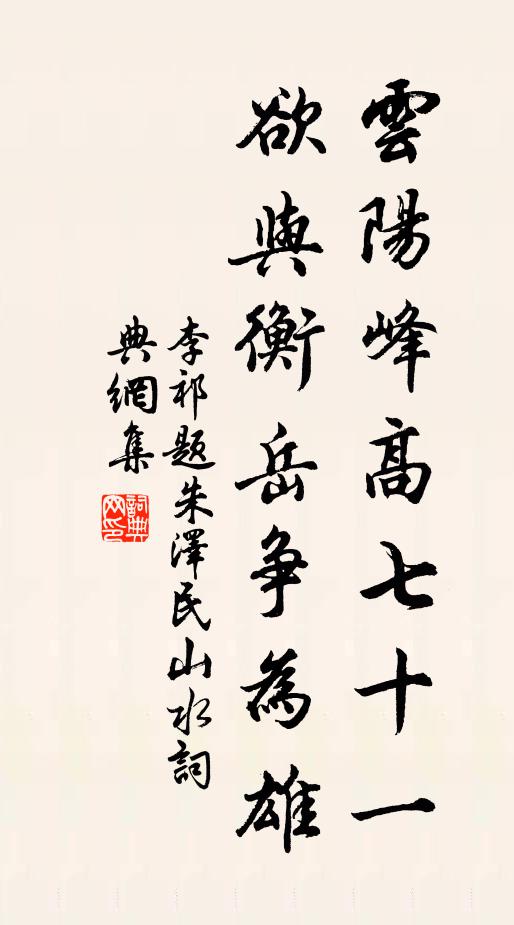 雲陽峰高七十一
欲與衡岳争為雄
李祁題朱澤民山水詞
典網集
詞典网印